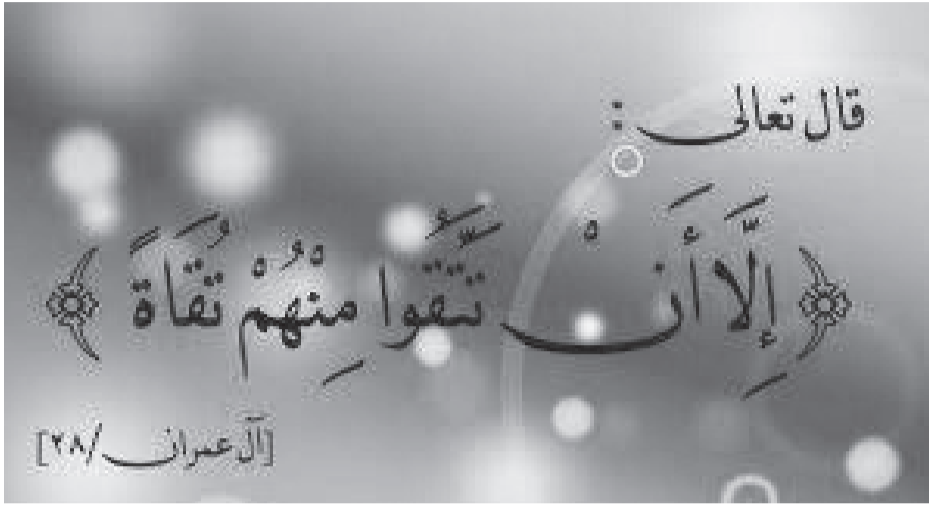 قال تعالى :
﴿ إِلَّا أَنْ تَتَّقُوا مِنْهُمْ تُقَاةً ﴾
[آل عمران/٢٨]